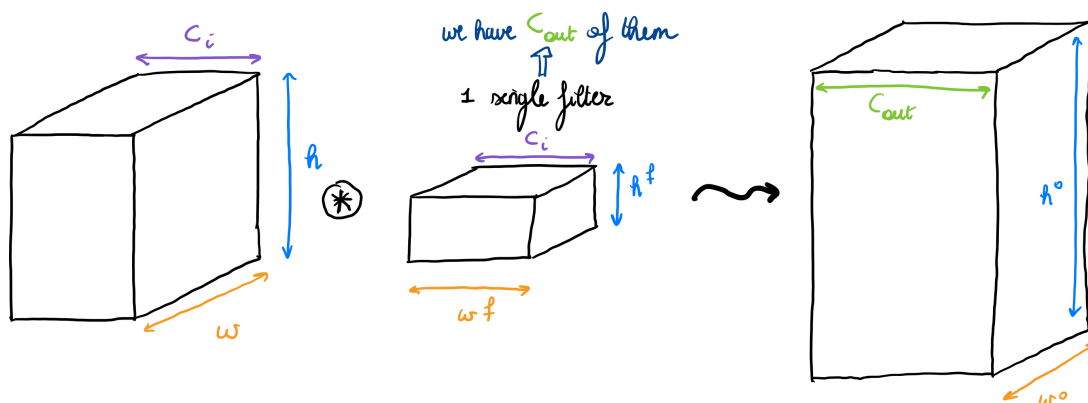 we have Cout of them
1 single filter
Ci
h
w
*
Ci
h^f
w^f
Cout
h^o
w^o